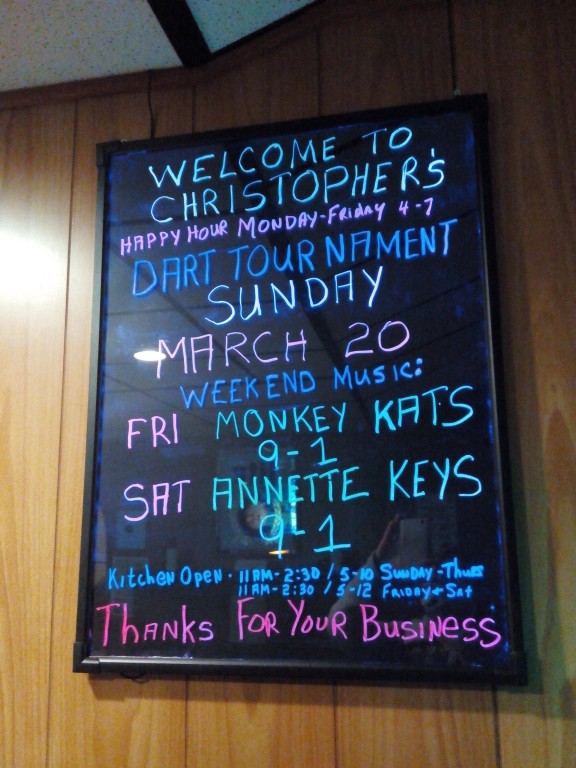 WELCOME TO
CHRISTOPHER'S
HAPPY HOUR MONDAY-FRIDAY 4-7
DART TOURNAMENT
SUNDAY
MARCH 20
WEEKEND MUSIC:
FRI MONKEY KATS
9-1
SAT ANNETTE KEYS
9-1
KITCHEN OPEN - 11AM-2:30 / 5-10 SUNDAY-THURS
11AM-2:30 / 5-12 FRIDAY+SAT
THANKS FOR YOUR BUSINESS